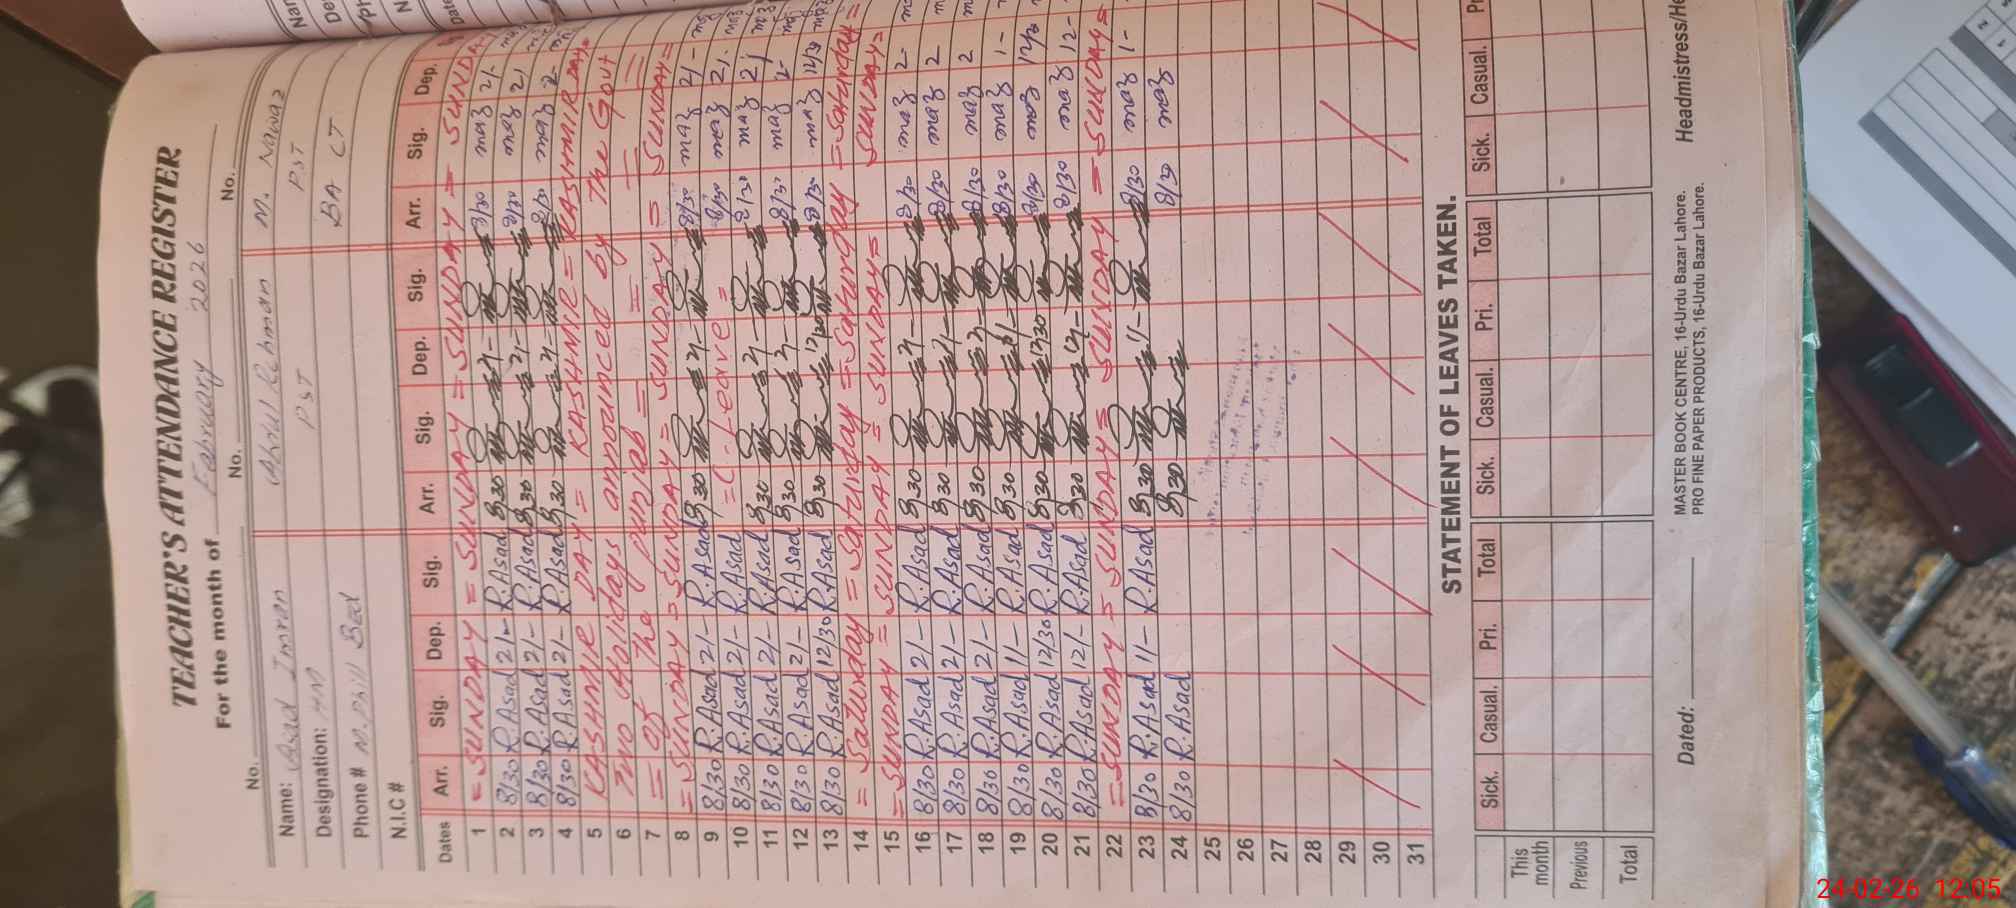 TEACHER'S ATTENDANCE REGISTER
For the month of February 2026
No. No. No.
Name: Asad Imran Abdul Rehman M. Nawaz
Designation: HM PST PST
Phone # M. Phill Bed BA CT
N.I.C #
Dates Arr. Sig. Dep. Sig. Arr. Sig. Dep. Sig. Arr. Sig. Dep.
1 = SUNDAY = SUNDAY = SUNDAY = SUNDAY = SUNDAY
2 8/30 R.Asad 2/- R.Asad 8,30 2/- 8/30 maz 2/-
3 8/30 R.Asad 2/- R.Asad 8,30 2/- 8/30 maz 2/
4 8/30 R.Asad 2/- R.Asad 8,30 2/- 8/30 maz 2-
5 KASHMIR DAY = KASHMIR = KASHMIR DAY =
6 Two Holidays announced by The Gout
7 = of The punjab =
8 = SUNDAY = SUNDAY = SUNDAY = SUNDAY =
9 8/30 R.Asad 2/- R.Asad 8,30 2/- 8/30 maz 2/-
10 8/30 R.Asad 2/- R.Asad = C. Leave = 8/30 maz 2/.
11 8/30 R.Asad 2/- R.Asad 8,30 2/- 8/30 maz 2/
12 8/30 R.Asad 2/- R.Asad 8,30 2/- 8/30 maz 2-
13 8/30 R.Asad 12/30 R.Asad 8,30 12/30 8/30 maz 12/30
14 = Saturday = Saturday = Saturday = Saturday =
15 = SUNDAY = SUNDAY = SUNDAY = SUNDAY =
16 8/30 R.Asad 2/- R.Asad 8,30 2/- 8/30 maz 2-
17 8/30 R.Asad 2/- R.Asad 8,30 8/30 maz 2
18 8/30 R.Asad 2/- R.Asad 8,30 2/- 8/30 maz 2
19 8/30 R.Asad 11/- R.Asad 8,30 8/30 maz 1-
20 8/30 R.Asad 12/30 R.Asad 8,30 12,30 8/30 maz 12/30
21 8/30 R.Asad 12/- R.Asad 8,30 12/- 8/30 maz 12-
22 = SUNDAY = SUNDAY = SUNDAY = SUNDAY =
23 8/30 R.Asad 11/- R.Asad 8,30 11/- 8/30 maz 1-
24 8/30 R.Asad 8,30 8/30 maz
25
26
27
28
29
30
31
STATEMENT OF LEAVES TAKEN.
Sick. Casual. Pri. Total Sick. Casual. Pri. Total Sick. Casual. Pr
This month
Previous
Total
MASTER BOOK CENTRE, 16-Urdu Bazar Lahore.
PRO FINE PAPER PRODUCTS, 16-Urdu Bazar Lahore.
Dated: Headmistress/He
24-02-26 12:05